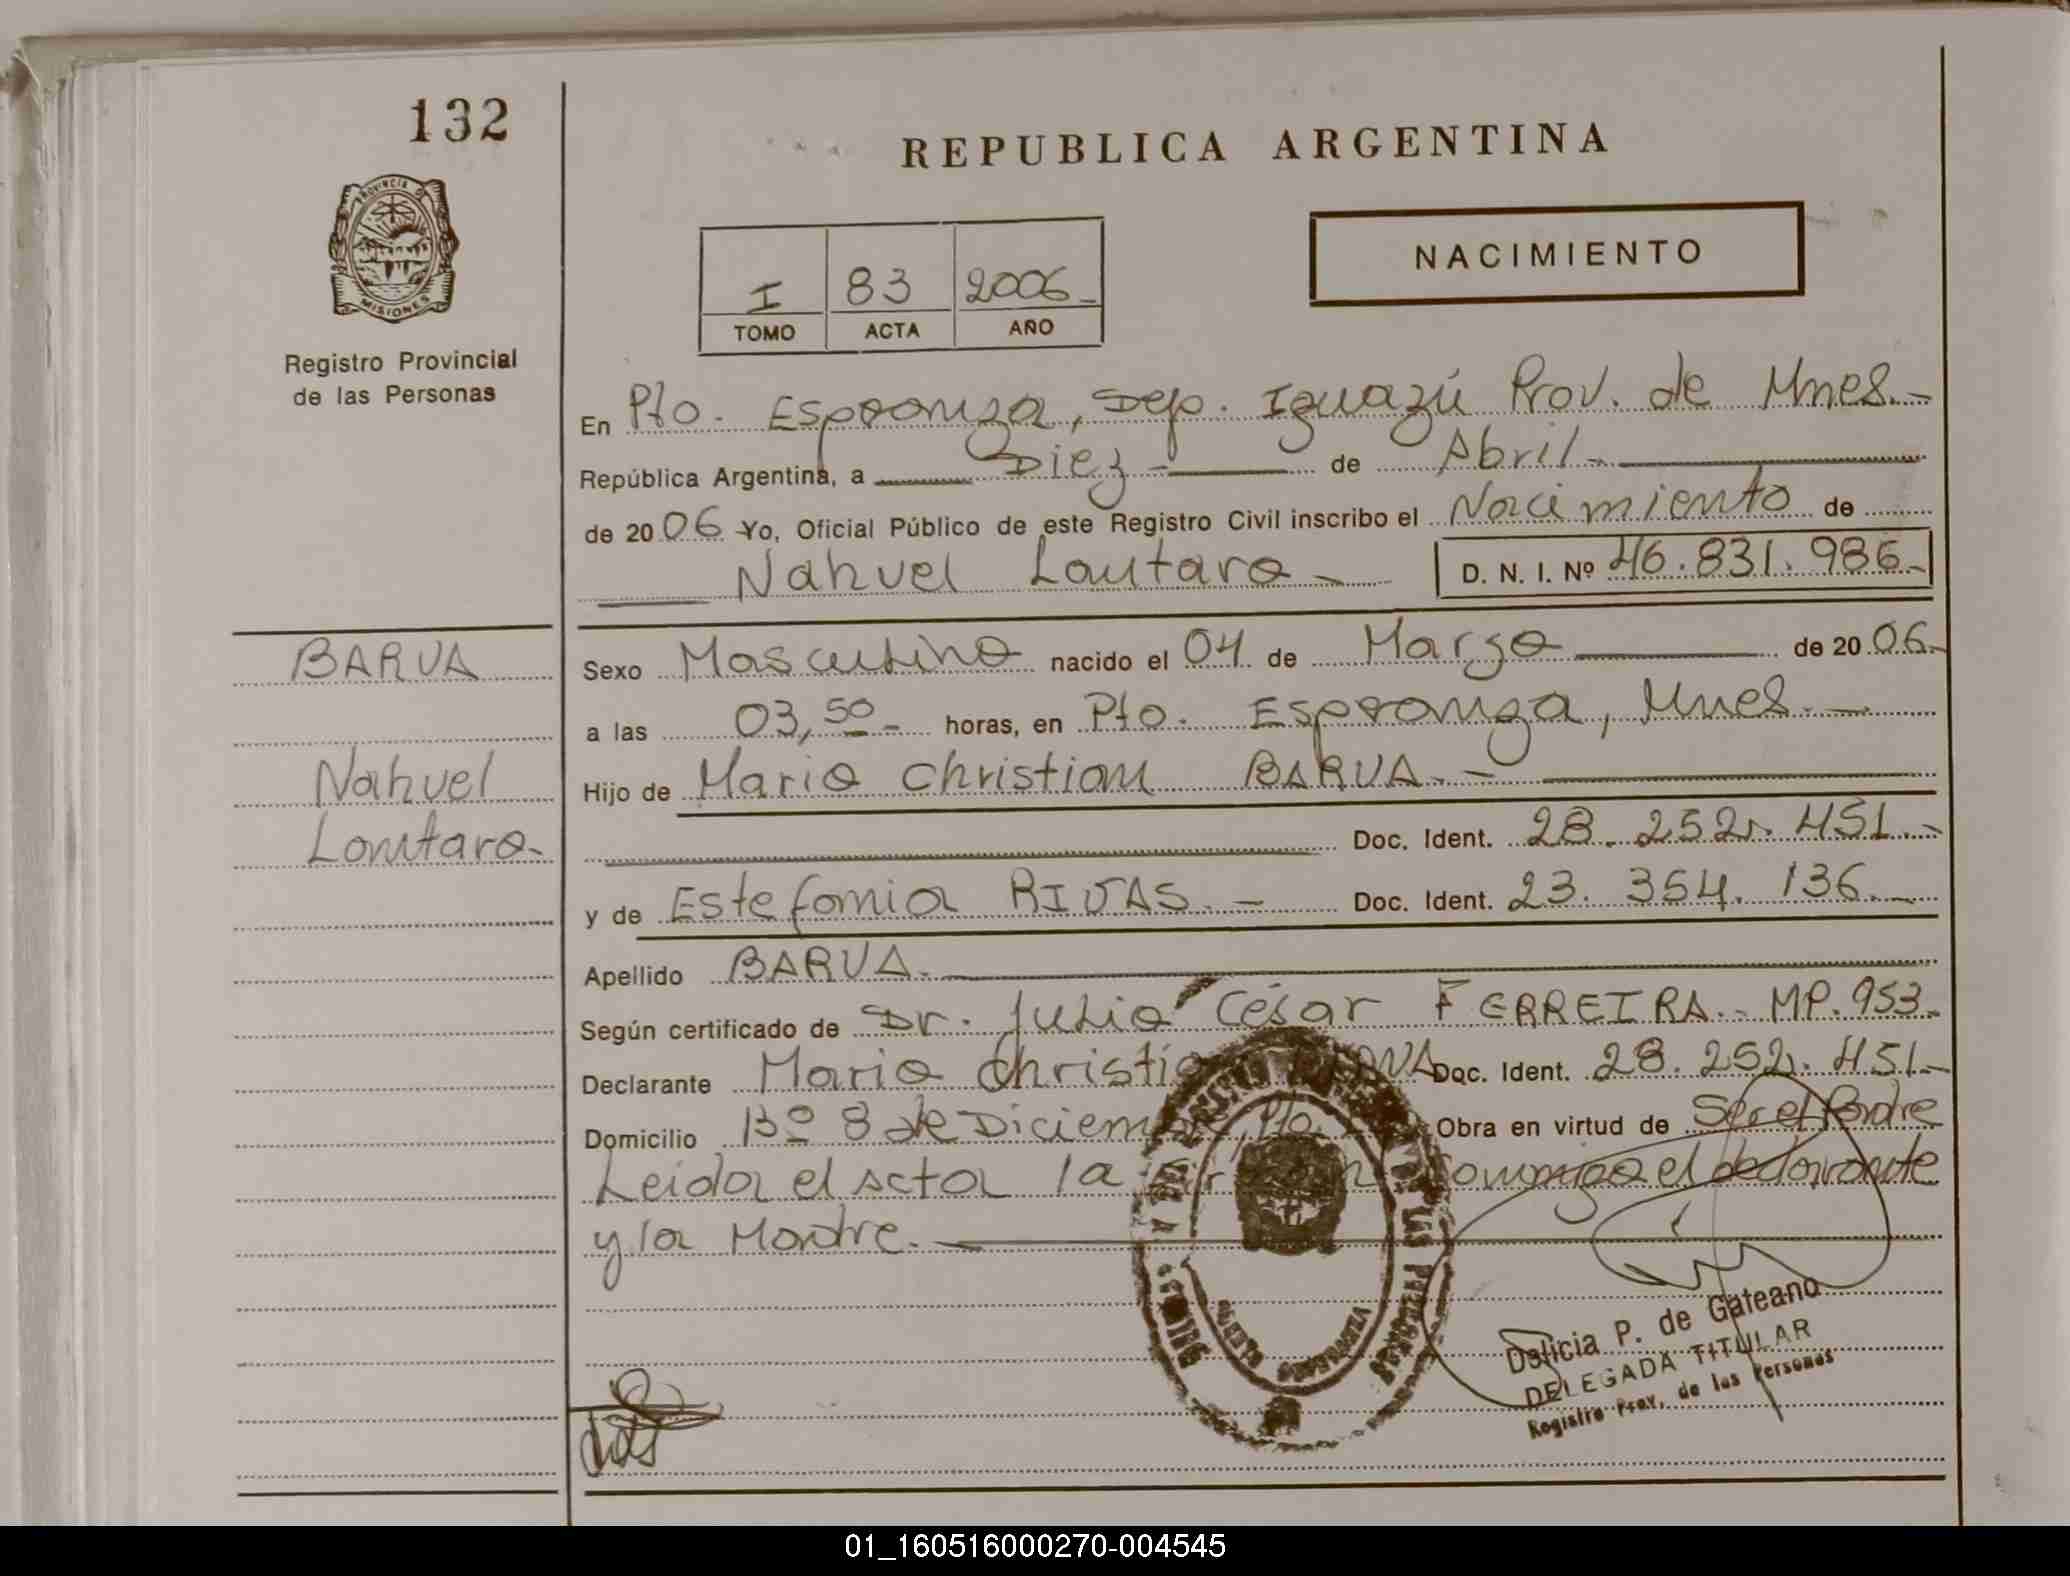 132
REPUBLICA ARGENTINA
PROVINCIA DE
MISIONES
Registro Provincial
de las Personas
I 83 2006
TOMO ACTA AÑO
NACIMIENTO
En Pto. Esperanza, Dep. Iguazú Prov. de Mnes.-
República Argentina, a Diez - de Abril -
de 2006 Yo, Oficial Público de este Registro Civil inscribo el Nacimiento de
Nahuel Lautaro - D. N. I. Nº 46.831.986.-
BARUA
Nahuel
Lautaro-
Sexo Masculino nacido el 04 de Marzo de 2006.-
a las 03,50- horas, en Pto. Esperanza, Mnes.-
Hijo de Mario Christian BARUA.-
Doc. Ident. 28.252.451.-
y de Estefania RIVAS.- Doc. Ident. 23.354.136.-
Apellido BARUA.
Según certificado de Dr. Julio César FERREIRA.- MP.953.-
Declarante Mario Christian BARUA Doc. Ident. 28.252.451.-
Domicilio Bº 8 de Diciembre, Pto. Obra en virtud de Ser el Padre
Leida el acta la firman conmigo el declarante
y la Madre.-
Delicia P. de Gateano
DELEGADA TITULAR
Registro Prov. de las Personas
01_160516000270-004545